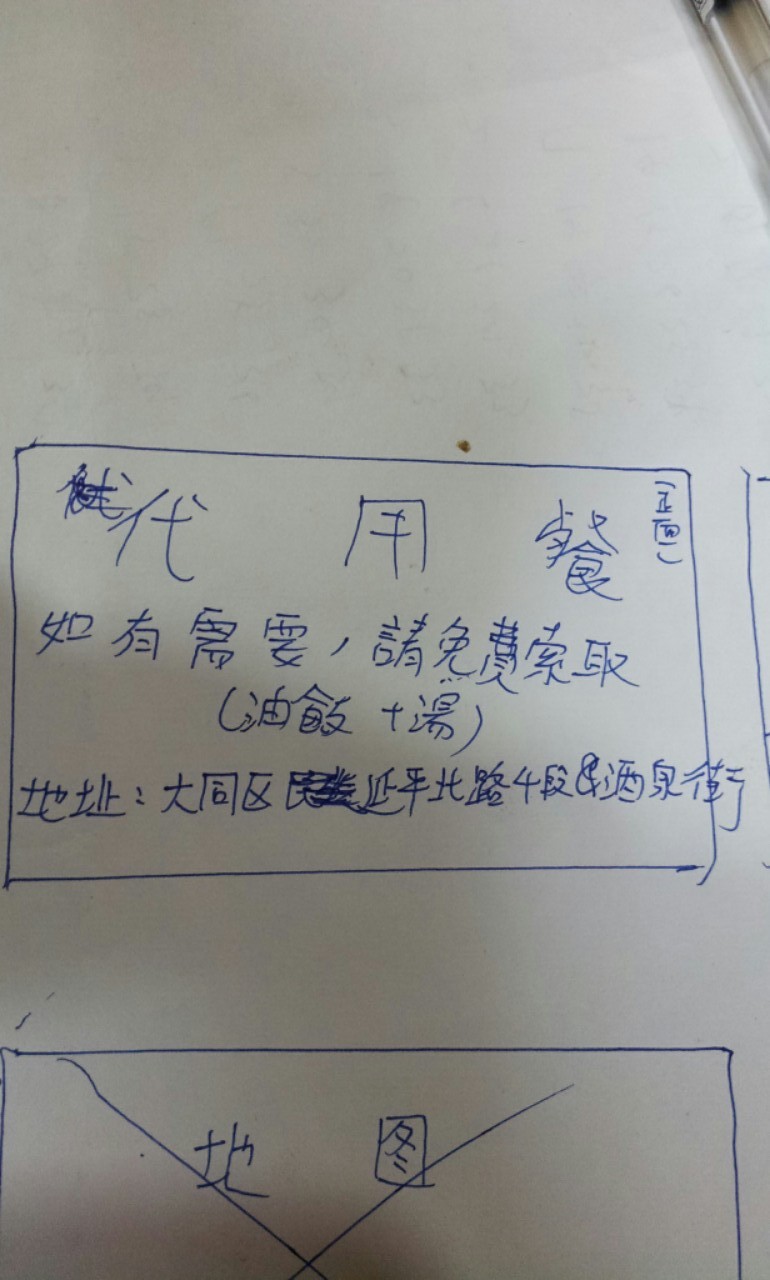 代用餐
(正面)
如有需要，請免費索取
(油飯+湯)
地址：大同区延平北路4段&酒泉街
地图